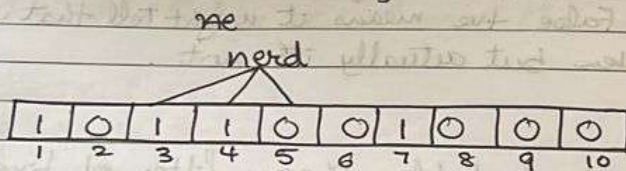 ne
nerd
1 0 1 1 0 0 1 0 0 0
1 2 3 4 5 6 7 8 9 10